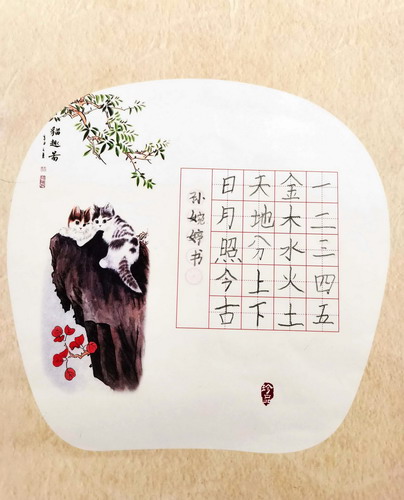 一二三四五
金木水火土
天地分上下
日月照今古
孙婉婷书
猫趣图
珍品